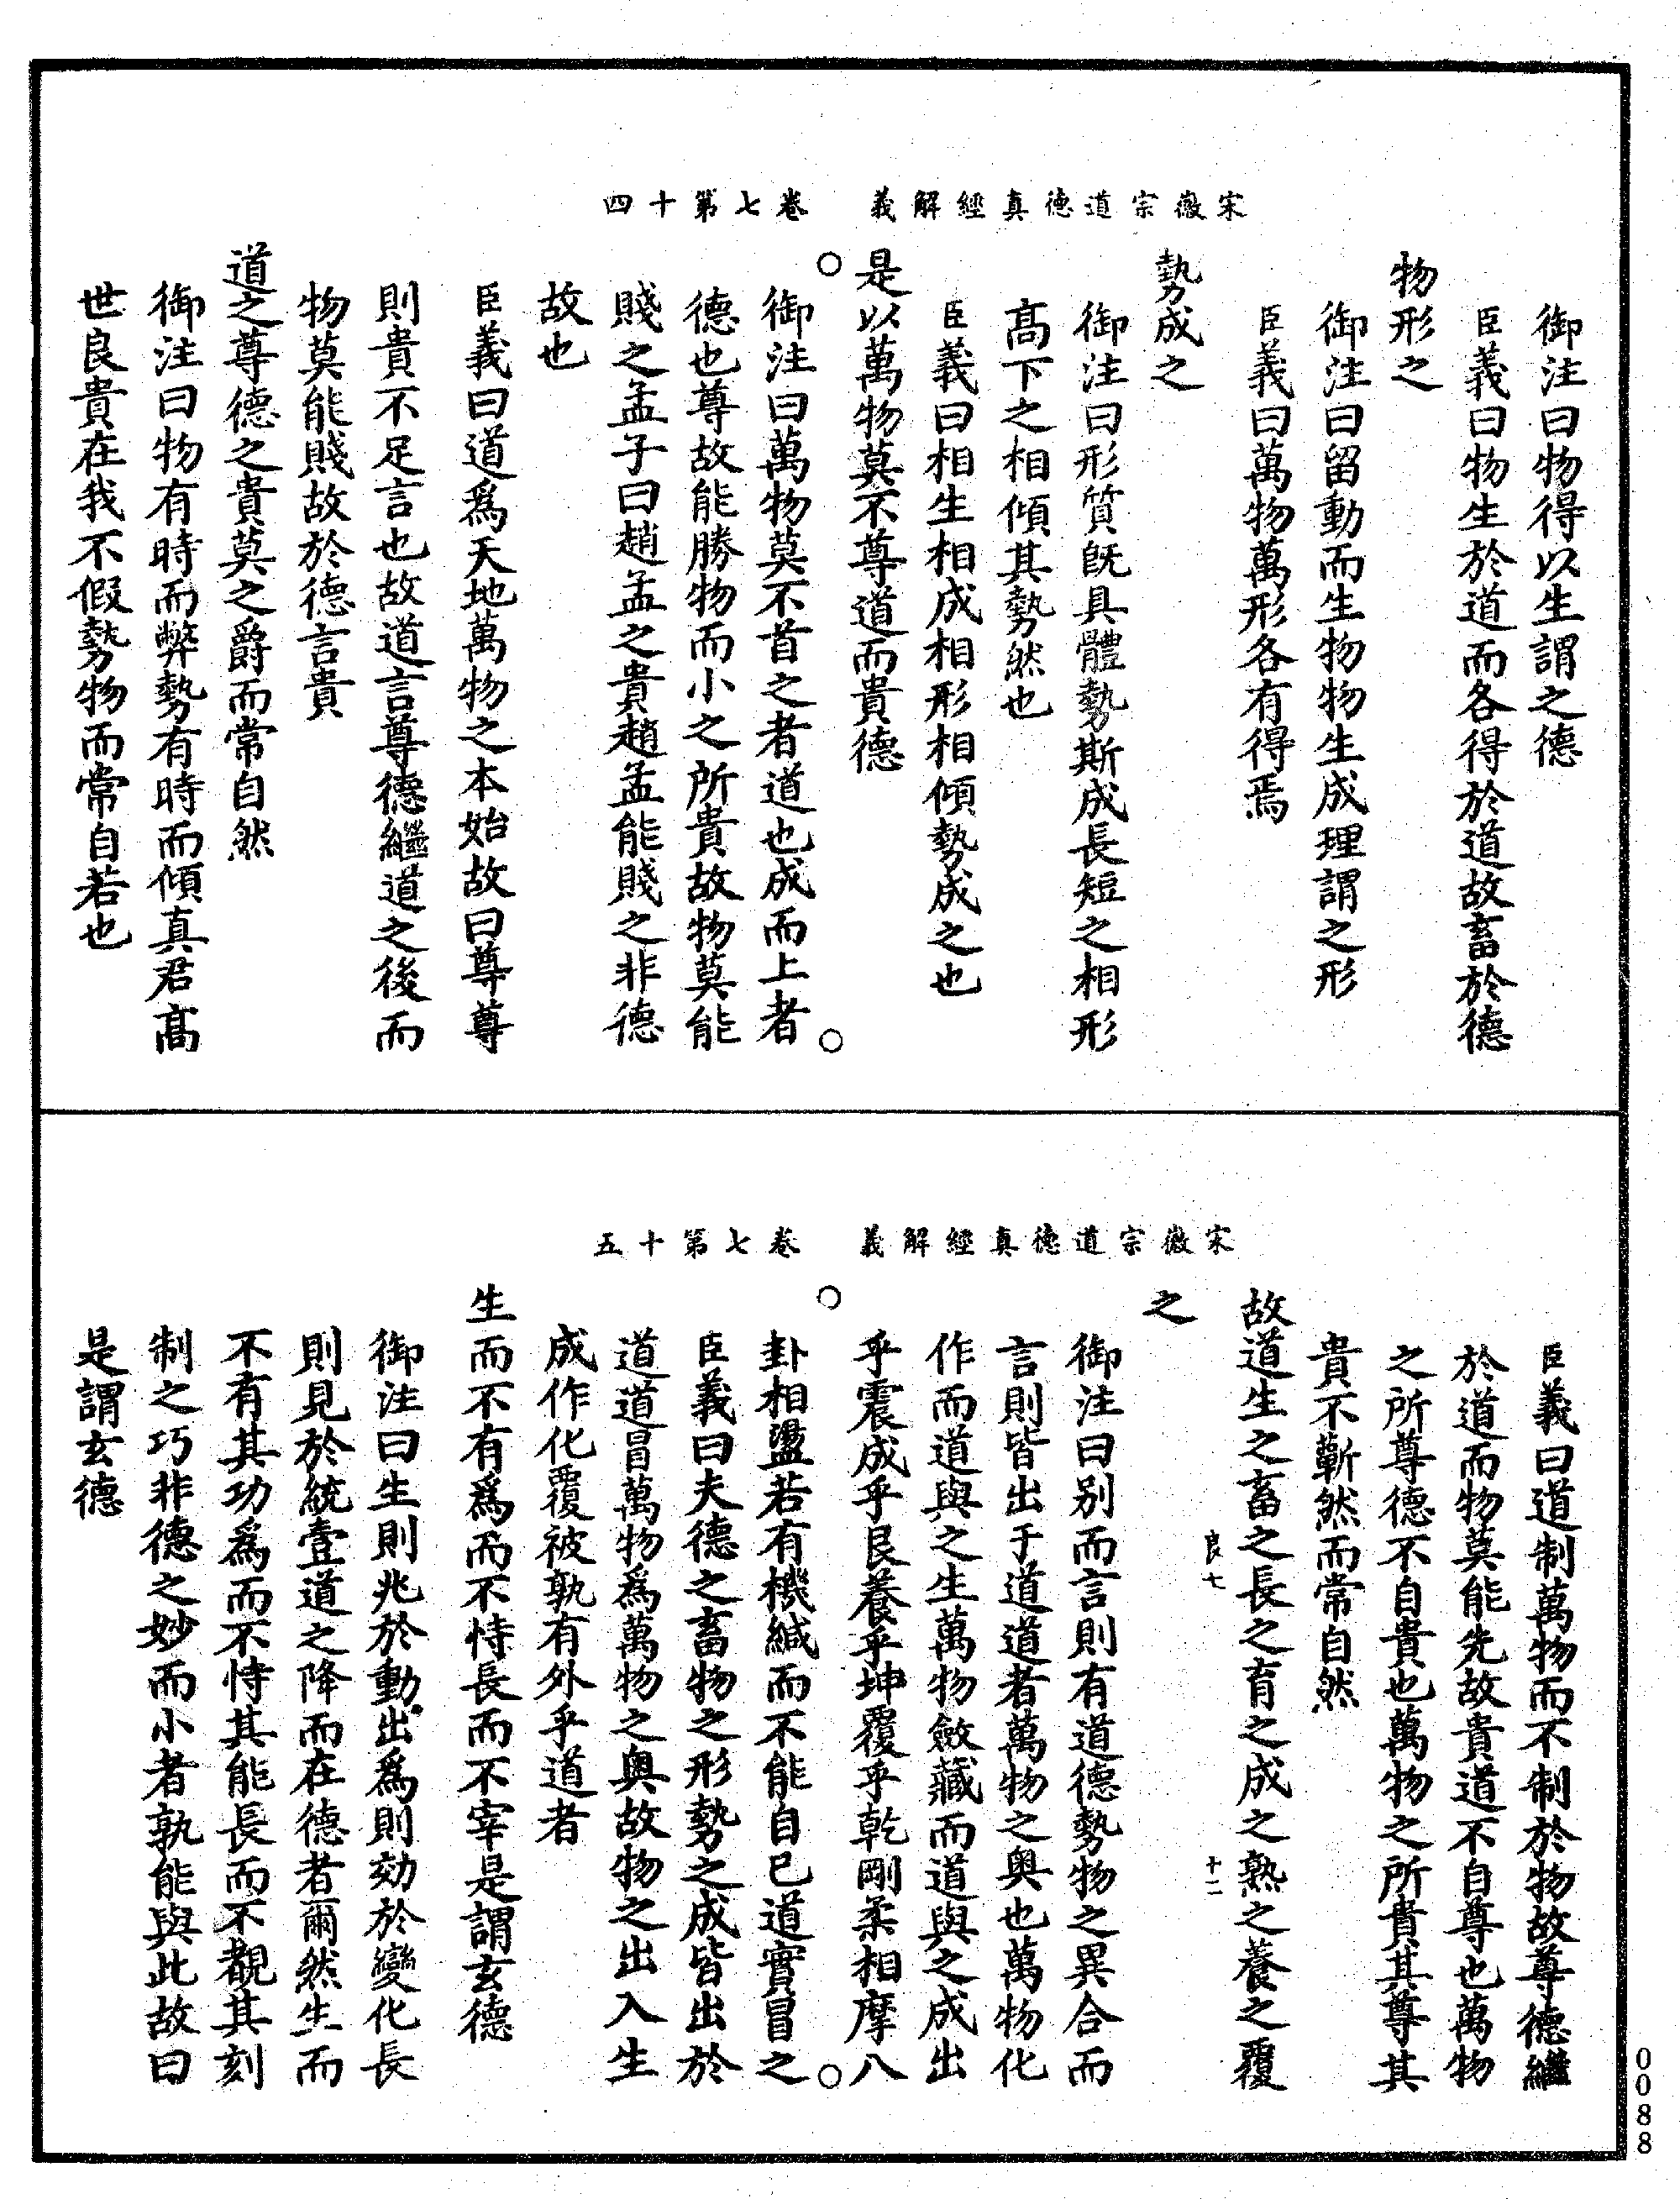 宋徽宗道德真經解義　卷七第十四
御注曰物得以生謂之德
臣義曰物生於道而各得於道故畜於德
物形之
御注曰留動而生物物生成理謂之形
臣義曰萬物萬形各有得焉
勢成之
御注曰形質既具體勢斯成長短之相形
高下之相傾其勢然也
臣義曰相生相成相形相傾勢成之也
是以萬物莫不尊道而貴德
御注曰萬物莫不首之者道也成而上者
德也尊故能勝物而小之所貴故物莫能
賤之孟子曰趙孟之貴趙孟能賤之非德
故也
臣義曰道爲天地萬物之本始故曰尊尊
則貴不足言也故道言尊德繼道之後而
物莫能賤故於德言貴
道之尊德之貴莫之爵而常自然
御注曰物有時而弊勢有時而傾真君高
世良貴在我不假勢物而常自若也
宋徽宗道德真經解義　卷七第十五
臣義曰道制萬物而不制於物故尊德繼
於道而物莫能先故貴道不自尊也萬物
之所尊德不自貴也萬物之所貴其尊其
貴不蘄然而常自然
故道生之畜之長之育之成之熟之養之覆
良七　十二
之
御注曰别而言則有道德勢物之異合而
言則皆出于道道者萬物之奥也萬物化
作而道與之生萬物斂藏而道與之成出
乎震成乎艮養乎坤覆乎乾剛柔相摩八
卦相盪若有機緘而不能自已道實冒之
臣義曰夫德之畜物之形勢之成皆出於
道道冒萬物爲萬物之奥故物之出入生
成作化覆被孰有外乎道者
生而不有爲而不恃長而不宰是謂玄德
御注曰生則兆於動出爲則効於變化長
則見於統壹道之降而在德者爾然生而
不有其功爲而不恃其能長而不覩其刻
制之巧非德之妙而小者孰能與此故曰
是謂玄德
0088